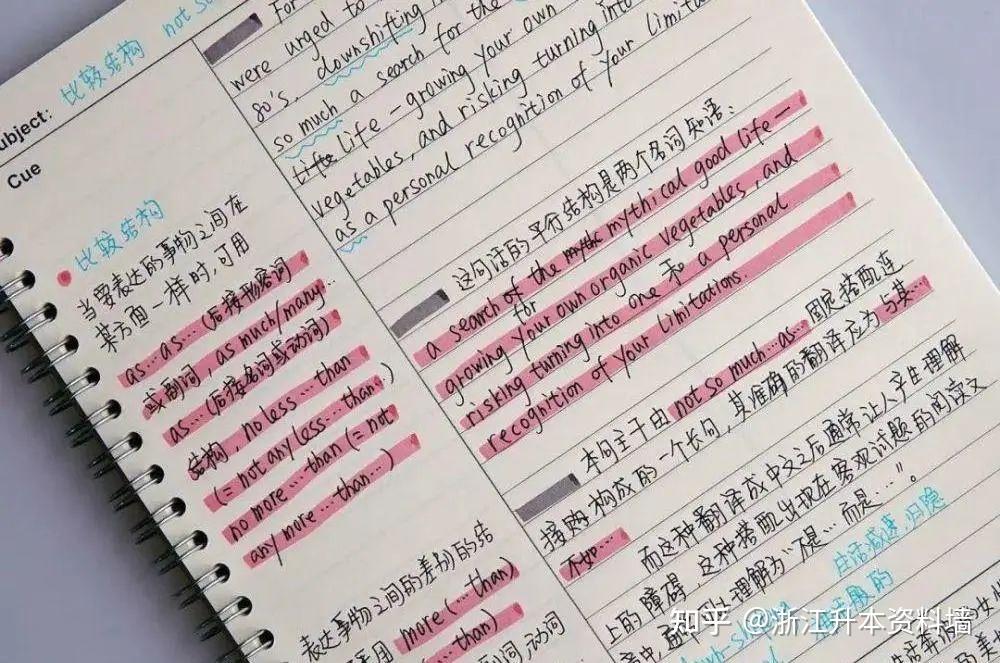 Subject: 比较结构 not so
Cue
比较结构
当要表达的事物之间在
某方面一样时,可用
as…as…(后接形容词
或副词, as much/many…
as…(后接名词或动词)
结构, no less…than
(= not any less…than…)
no more…than (= not
any more…than…)
表达事物之间的差别的结
用 more (…than)
…than…)
词,动词
For
were urged to
80's, downshifting in
so much a search for the
life — growing your own
vegetables, and risking turning into
as a personal recognition of your limita
这句话的平行结构是两个名词短语:
a search of the mythical good life —
for
growing your own organic vegetables, and
risking turning into one 和 a personal
recognition of your limitations.
本句主干由 not so much…as… 固定搭配连
接两构成的一个长句,其准确的翻译应为与其…
不如…
而这种翻译成中文之后通常让人产生理解
上的障碍,这种搭配出现在客观试题的阅读文
理解为"不是…而是…"。
生活减速,归隐
知乎 @浙江升本资料墙